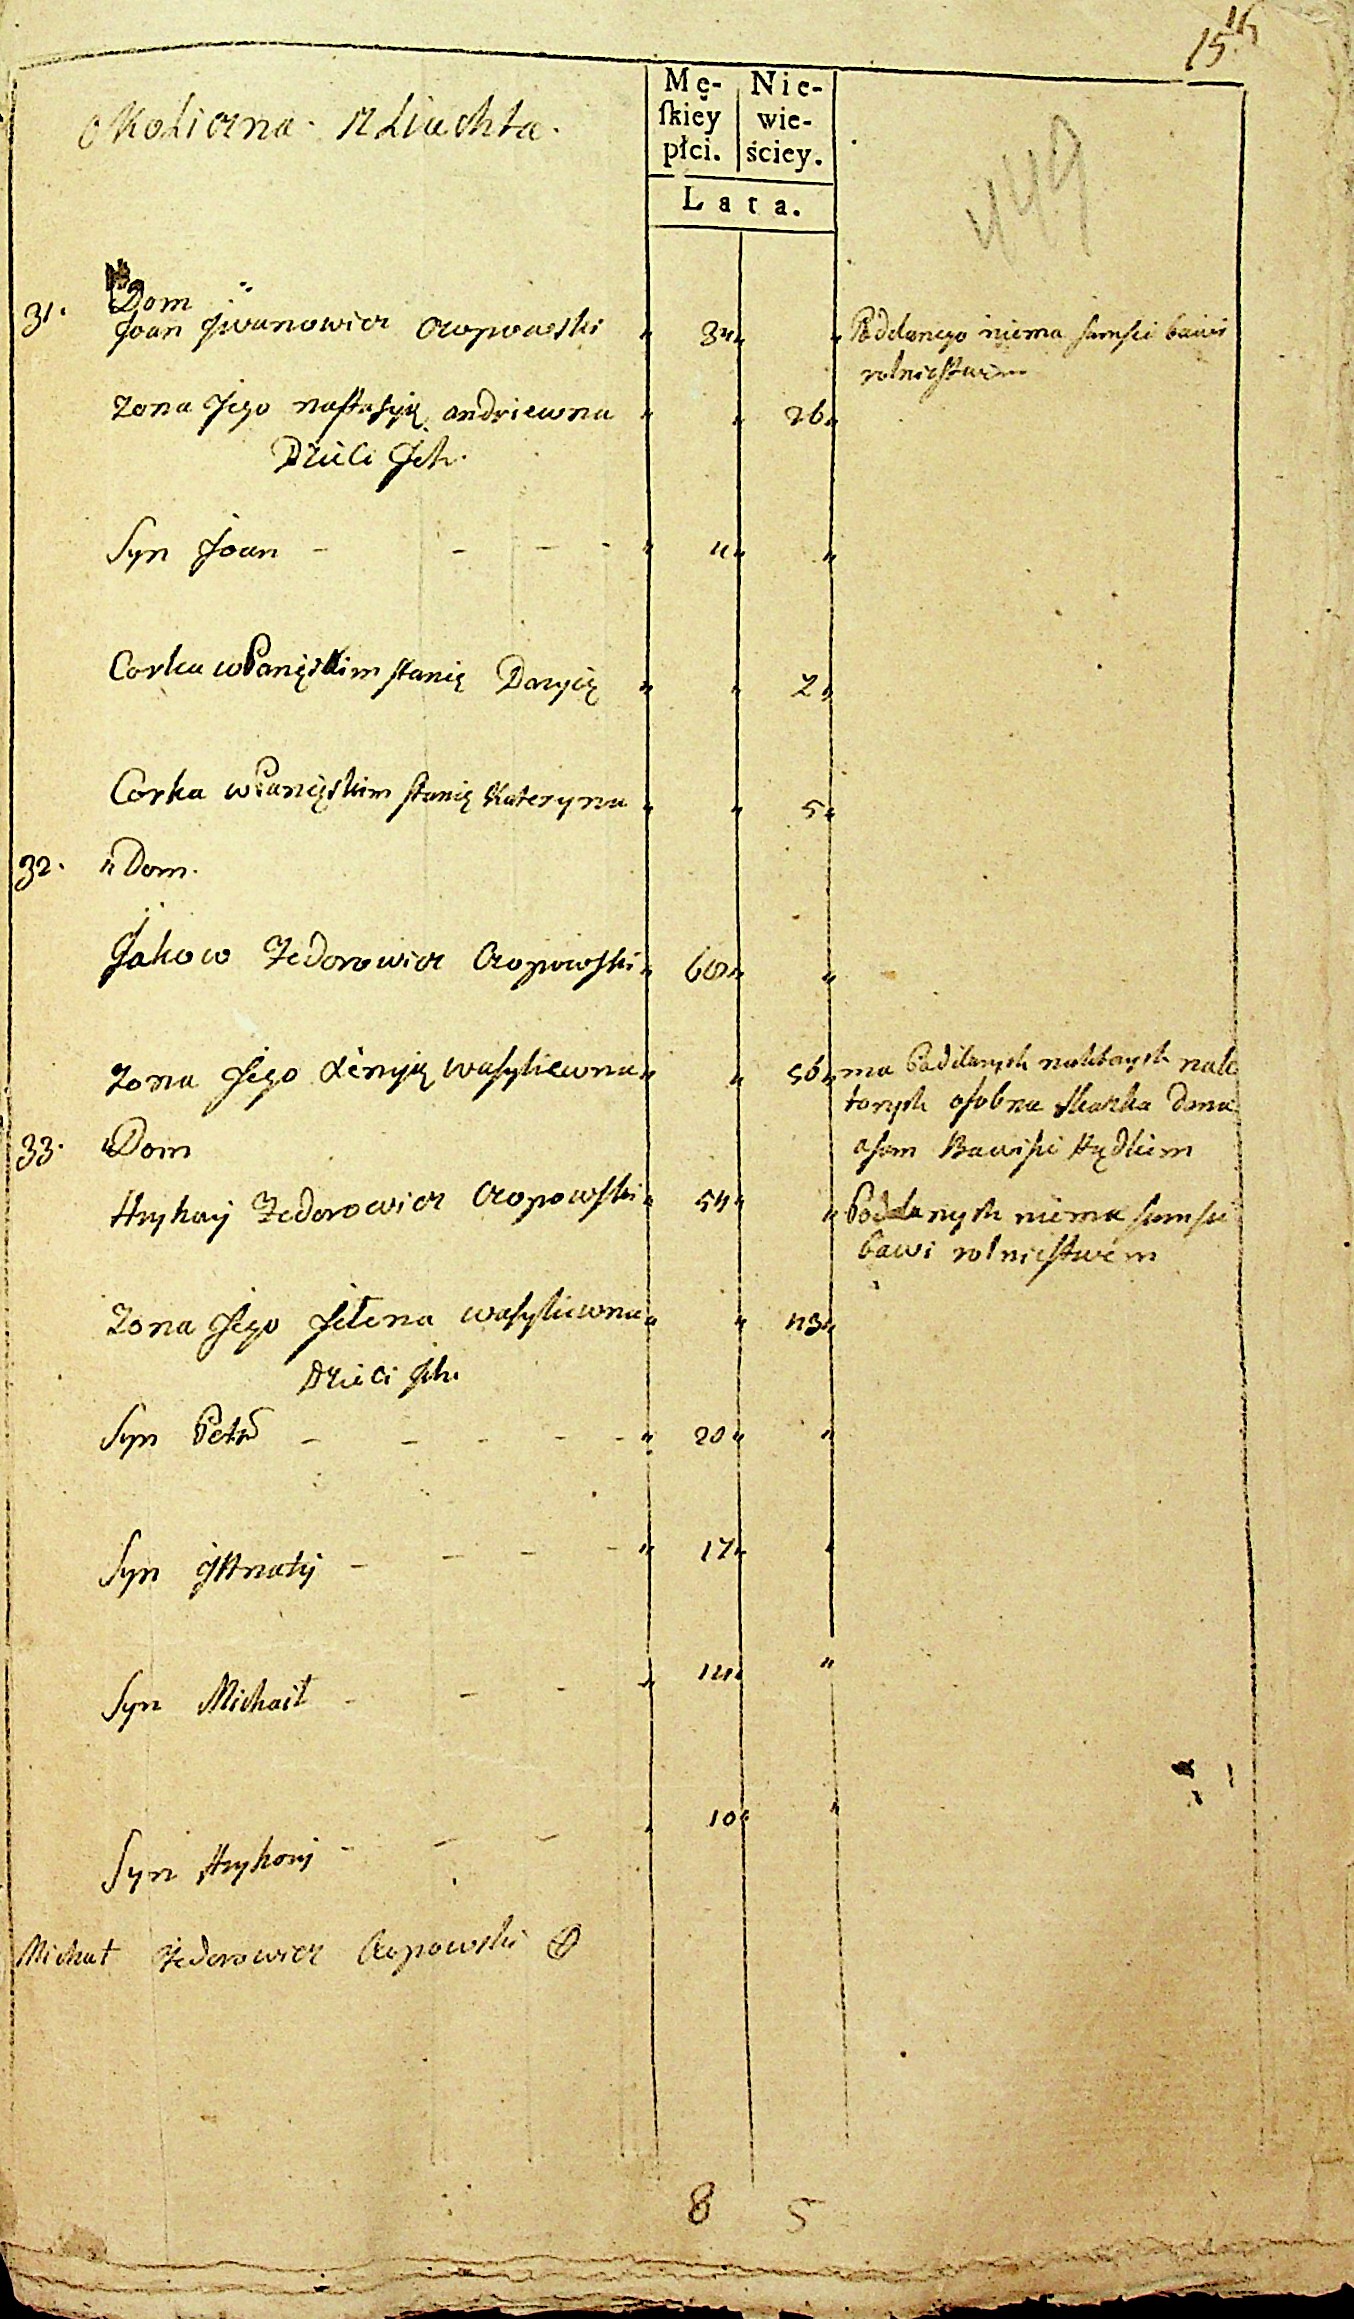 15 16
Okoliczna Szliachta.
Mę-
skiey
płci.
Nie-
wie-
ściey.
Lata.
449
31. Dom
Joan Jwanowicz Czopowski " 34 " " Poddanego niema samsię bawi
rolnictwem
Zona Jego nastasyię andriewna " " 26 "
Dzieci Jch.
Syn Joan - - - - " 4 " "
Corka w Panięskim stanię Daryię " " 7 "
Corka w Panięskim stanię Kateryna " " 5 "
32. " Dom.
Jakow Fedorowicz Czopowski " 60 " "
Zona Jego Xenyię wasyliewna " " 56 " ma Poddanych naktorych nak
torych osobna skazka dana
asam Bawisie
33. " Dom
Hryhory Fedorowicz Czopowski " 54 " " Poddanych niema samsię
bawi rolnictwem
Zona Jego Jełena wasyliewna " " 43 "
Dzieci Jch.
Syn Petr - - - - - " 20 " "
Syn JHnaty - - - - " 17 " "
Syn Michaił - - - " 14 " "
Syn Hryhory - - - " 10 " "
Michał Fedorowicz Czopowski
8 5